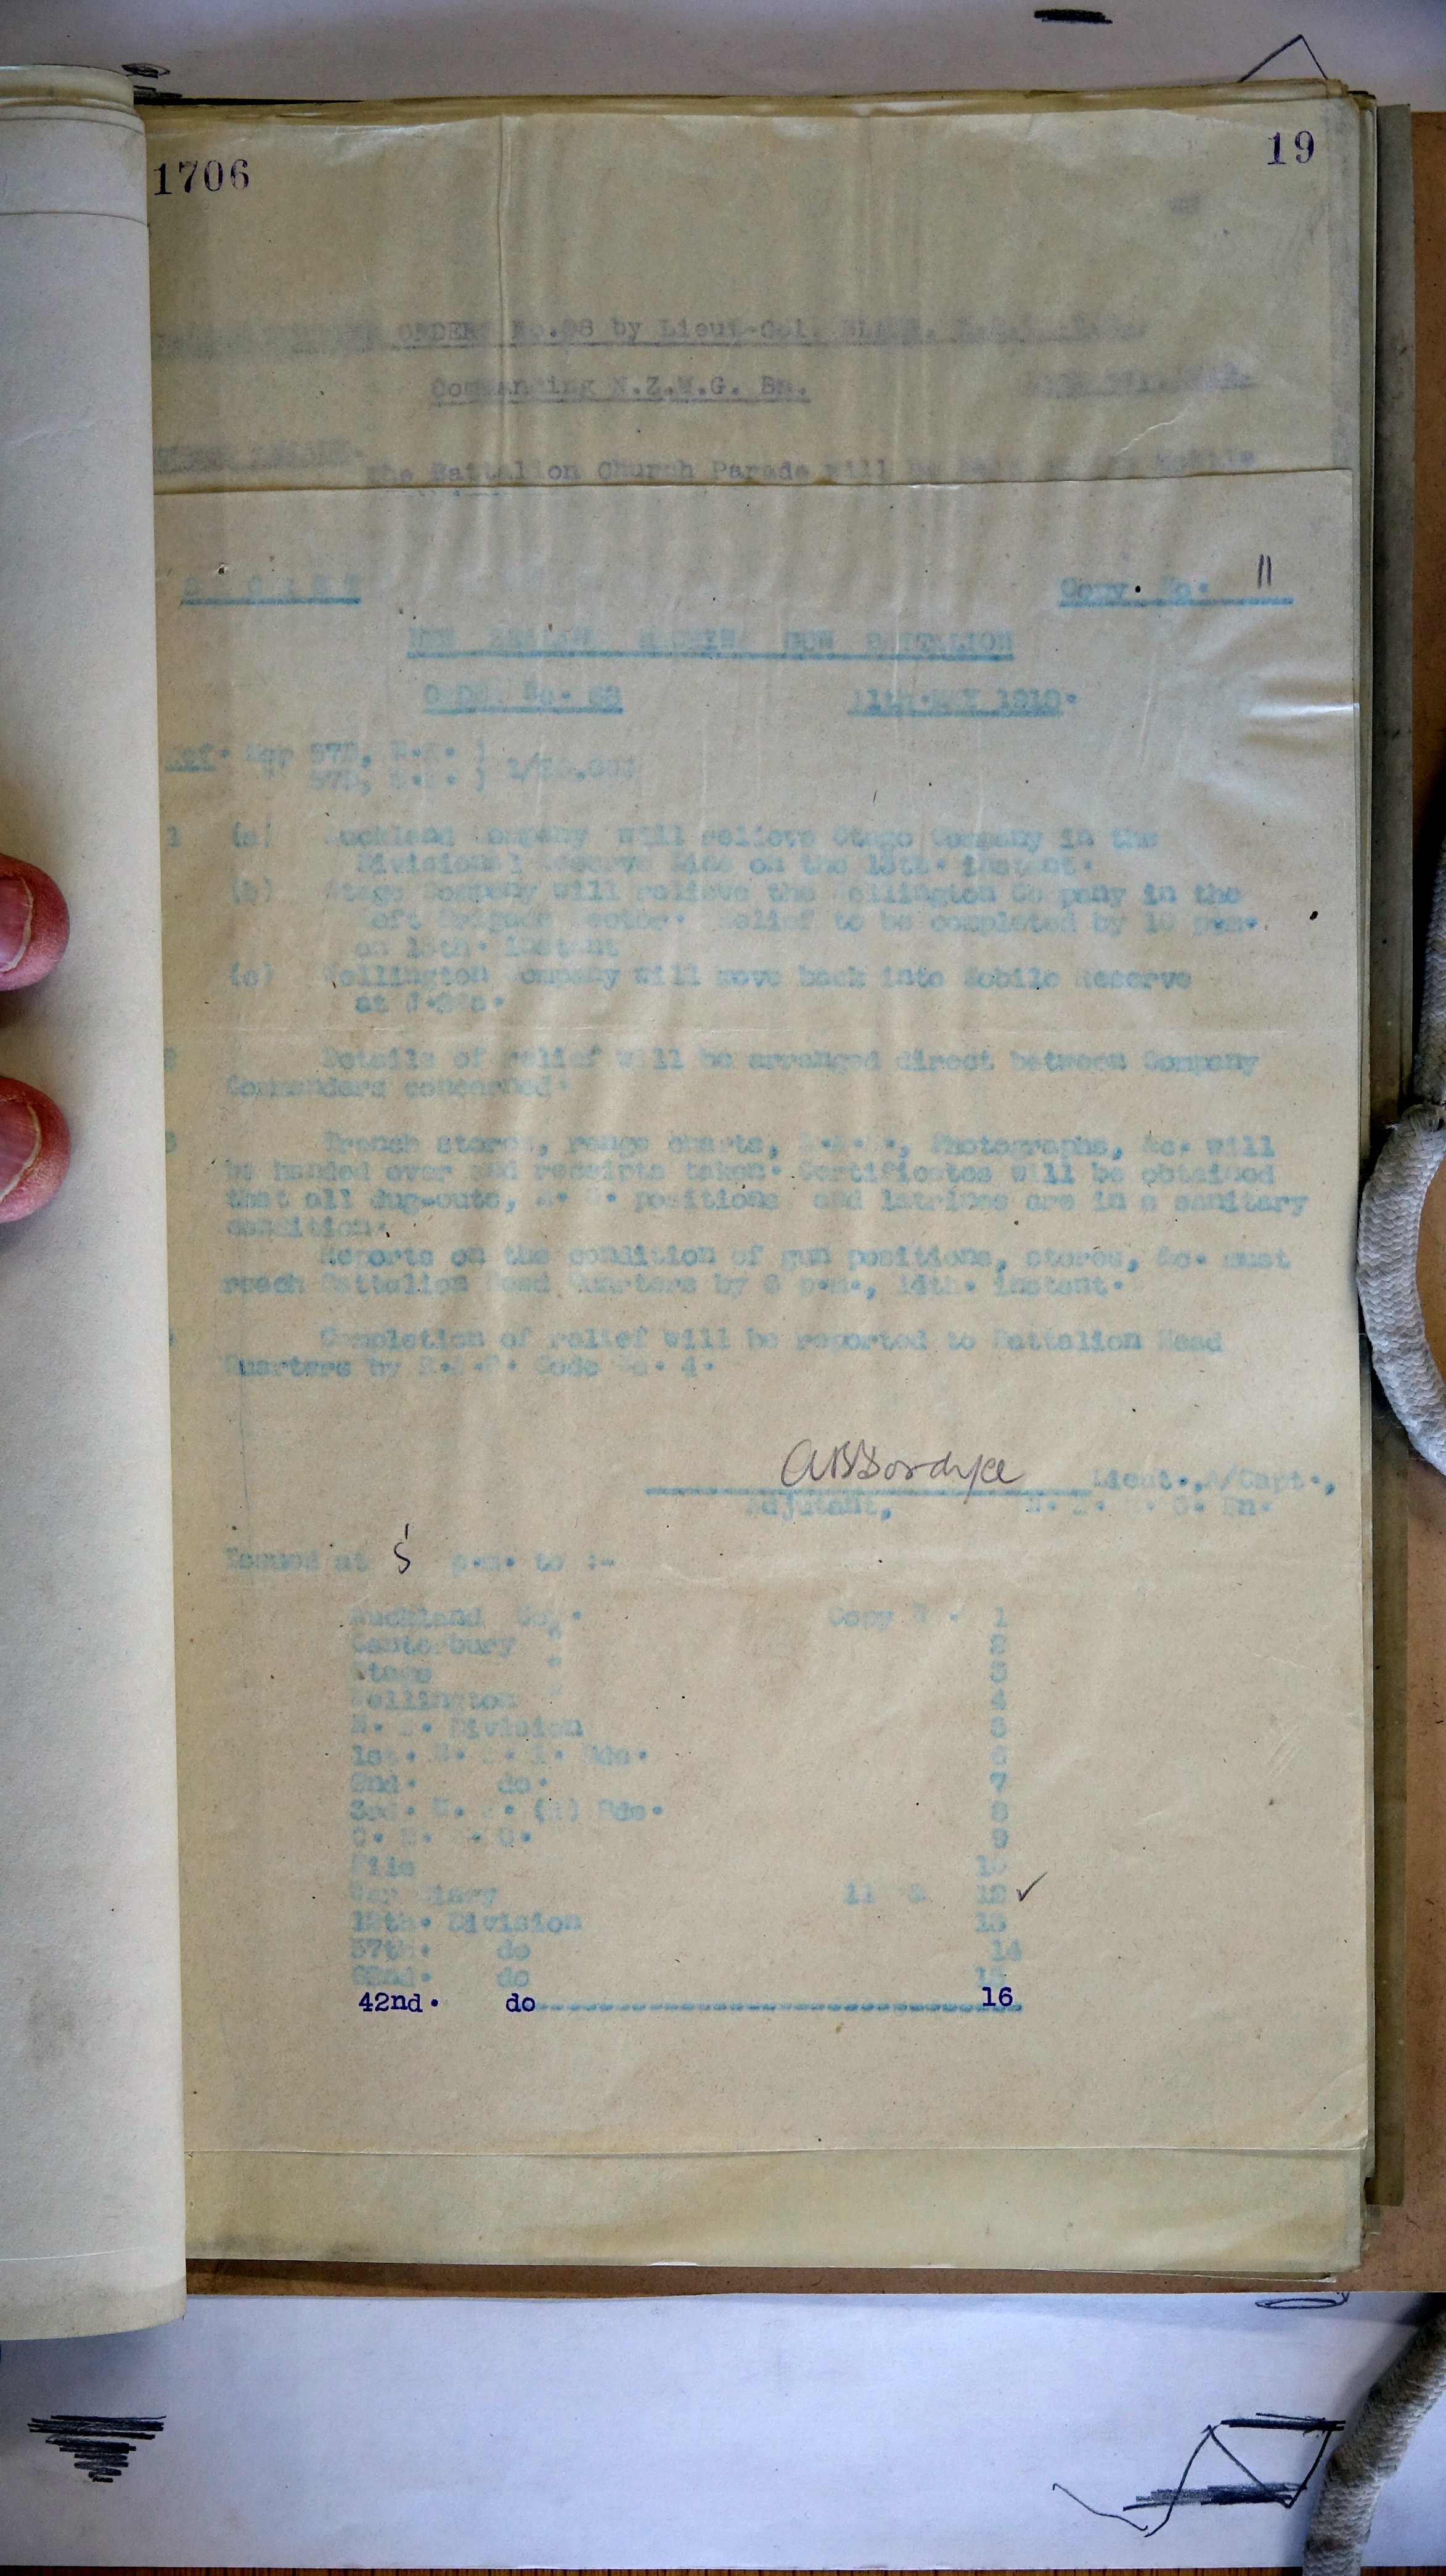 1706
19
ORDERS No.98 by Lieut-Col.
Commanding N.Z.M.G. Bn.
The Battalion Church Parade will be
S E C R E T
Copy. No. 11
NEW ZEALAND MACHINE GUN BATTALION
ORDER No. 11th. MAY 1918.
Ref. Map 57D, N.E. )
" 57D, ) 1/20,000
1 (a) Auckland Company will relieve Otago Company in the
Divisional Reserve Line on the 13th. instant.
(b) Otago Company will relieve the Wellington Company in the
Left Brigade Sector. Relief to be completed by 10 p.m.
on 13th. instant
(c) Wellington Company will move back into Mobile Reserve
at
2 Details of relief will be arranged direct between Company
Commanders concerned.
3 Trench stores, range charts, Photographs, &c. will
be handed over and receipts taken. Certificates will be obtained
that all dug-outs, M. G. positions and latrines are in a sanitary
condition.
Reports on the condition of gun positions, stores, &c. must
reach Battalion Head Quarters by 6 p.m., 14th. instant.
Completion of relief will be reported to Battalion Head
Quarters by Code No. 4.
Lieut., A/Capt.,
Adjutant, N. Z. M. G. Bn.
Issued at 5 p.m. to :-
Auckland Coy. Copy No. 1
Canterbury " 2
Otago " 3
Wellington " 4
N. Z. Division 5
1st. N. Z. I. Bde. 6
2nd. do. 7
3rd. N. Z. (R) Bde. 8
9
File 10
War Diary 11 & 12 ✓
12th. Division 13
37th. do 14
62nd. do 15
42nd. do 16